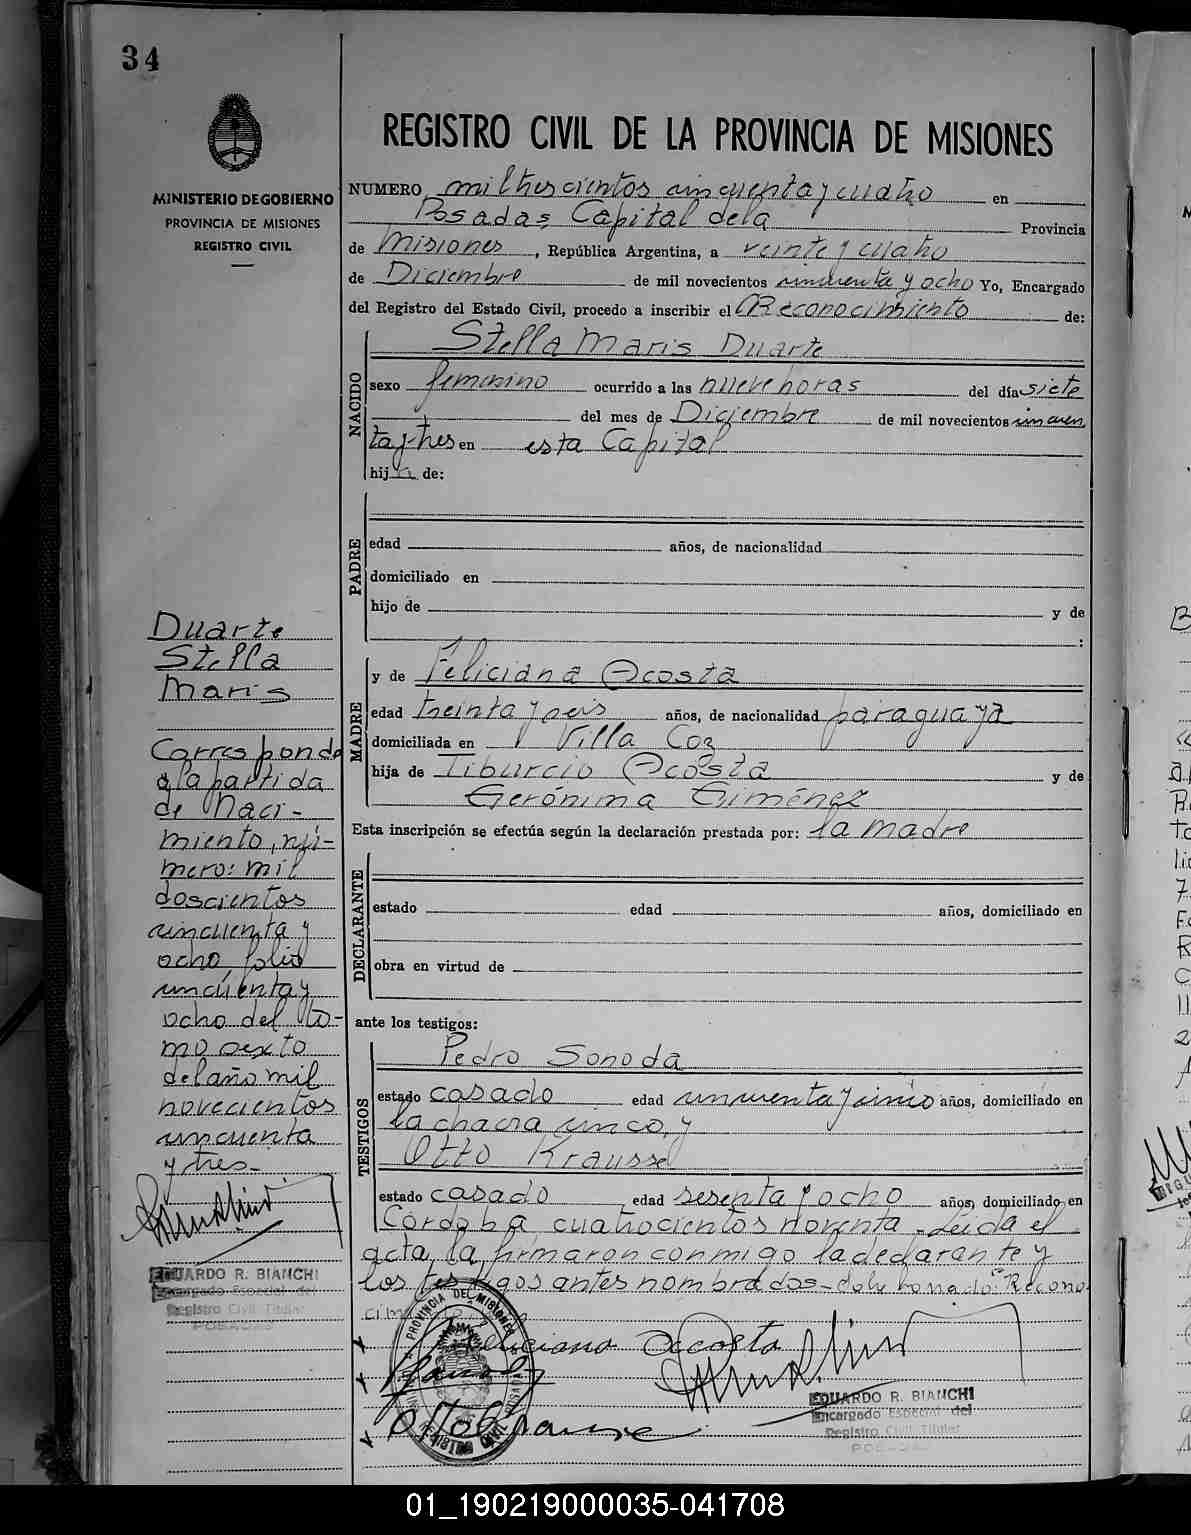 34
MINISTERIO DE GOBIERNO
PROVINCIA DE MISIONES
REGISTRO CIVIL
Duarte
Stella
Maris
Corresponde
a la partida
de Naci-
miento, nú-
mero: mil
doscientos
cincuenta y
ocho folio
cincuenta y
ocho del to-
mo sexto
del año mil
novecientos
cincuenta
y tres-
EDUARDO R. BIANCHI
Encargado Especial del
Registro Civil Titular
POSADAS
REGISTRO CIVIL DE LA PROVINCIA DE MISIONES
NUMERO mil trescientos cincuenta y cuatro en
Posadas, Capital de la Provincia
de Misiones, República Argentina, a veinte y cuatro
de Diciembre de mil novecientos cincuenta y ocho Yo, Encargado
del Registro del Estado Civil, procedo a inscribir el Reconocimiento de:
NACIDO
Stella Maris Duarte
sexo femenino ocurrido a las nueve horas del día siete
del mes de Diciembre de mil novecientos cincuen
ta y tres en esta Capital
hija de:
PADRE
edad años, de nacionalidad
domiciliado en
hijo de y de
:
MADRE
y de Feliciana Acosta
edad treinta y seis años, de nacionalidad paraguaya
domiciliada en Villa Coz
hija de Tiburcio Acosta y de
Gerónima Giménez
Esta inscripción se efectúa según la declaración prestada por: la madre
DECLARANTE
estado edad años, domiciliado en
obra en virtud de
ante los testigos:
TESTIGOS
Pedro Sonoda
estado casado edad cincuenta y cinco años, domiciliado en
la chacra cinco, y
Otto Krausse
estado casado edad sesenta y ocho años, domiciliado en
Córdoba cuatrocientos noventa. Leída el
acta, la firmaron conmigo la declarante y
los testigos antes nombrados- Recono
Feliciana Accosta
Otto Krausse
PROVINCIA DE MISIONES
REGISTRO CIVIL
EDUARDO R. BIANCHI
Encargado Especial del
Registro Civil Titular
POSADAS
01_190219000035-041708